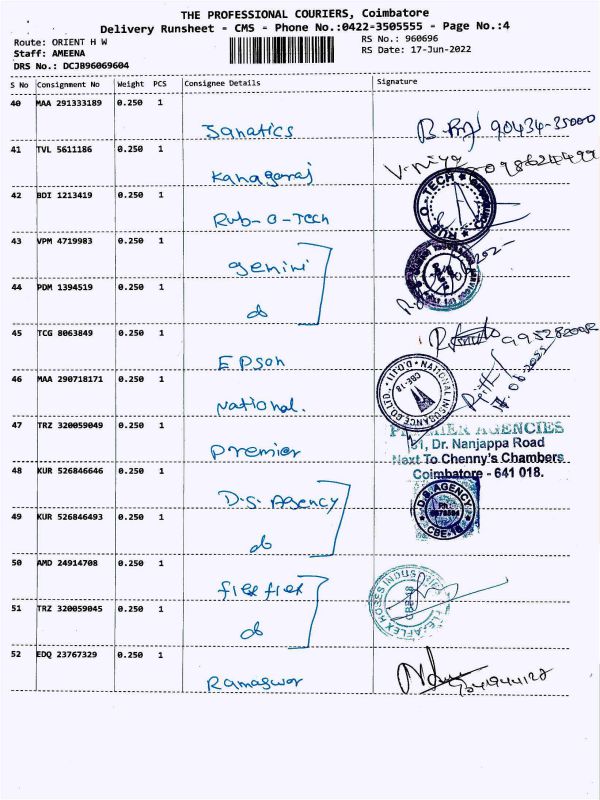 THE PROFESSIONAL COURIERS, Coimbatore
Delivery Runsheet - CMS - Phone No.:0422-3505555 - Page No.:4
Route: ORIENT H W
RS No.: 960696
Staff: AMEENA
RS Date: 17-Jun-2022
DRS No.: DCJB96069604
S No Consignment No Weight PCS Consignee Details Signature
40 MAA 291333189 0.250 1
Janatics 90434-35000
41 TVL 5611186 0.250 1
Kanagaraj
42 BDI 1213419 0.250 1
Rub-O-Tech RUB O-TECH
43 VPM 4719983 0.250 1
gemini
44 PDM 1394519 0.250 1
do
45 TCG 8063849 0.250 1
Epson
46 MAA 290718171 0.250 1
National. NATIONAL INSURANCE CO.LTD. D.O.III CBE-18
47 TRZ 320059049 0.250 1
Premier PREMIER AGENCIES
81, Dr. Nanjappa Road
Next To Chenny's Chambers
Coimbatore - 641 018.
48 KUR 526846646 0.250 1
D.S. Agency D.S. AGENCY CBE-18
49 KUR 526846493 0.250 1
do
50 AMD 24914708 0.250 1
flexflex HOSES INDUSTRIES
51 TRZ 320059045 0.250 1
do
52 EDQ 23767329 0.250 1
Ramaswor